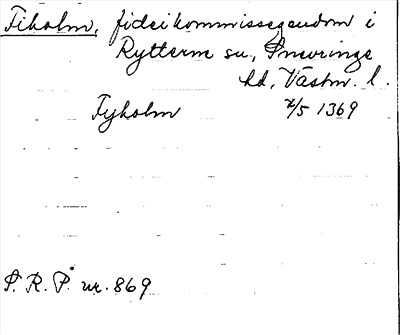 Fiholm, fideikommissegendom i
Rytterne sn, Snevringe
hd, Västm. l.
Fyholm 7/5 1369
S. R. P. nr. 869